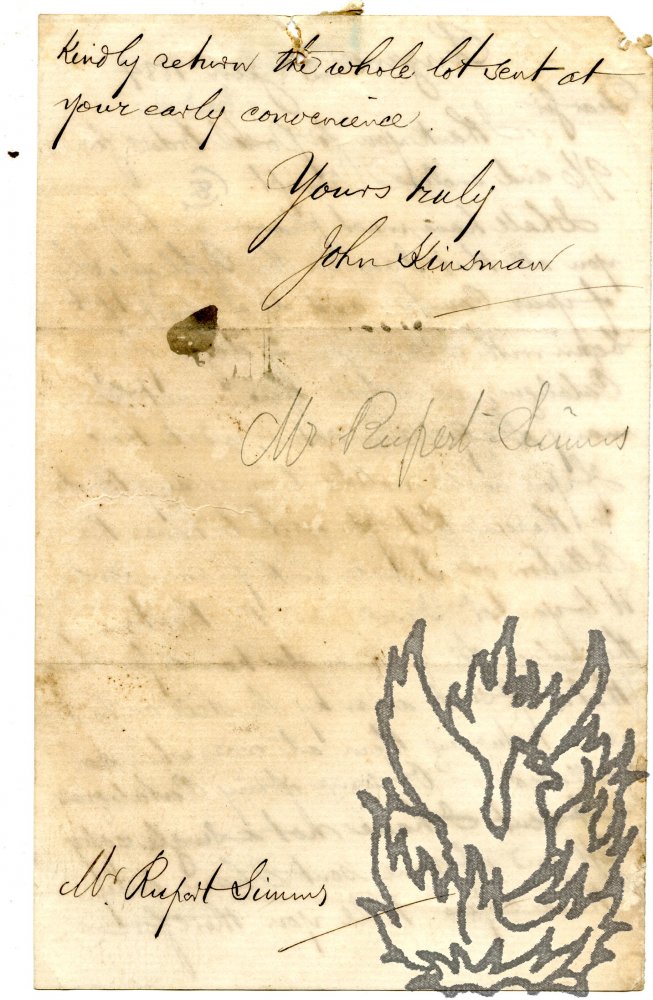 Kindly return the whole lot sent at
your early convenience.
Yours truly
John Kinsman
Mr Rupert Simms
Mr. Rupert Simms